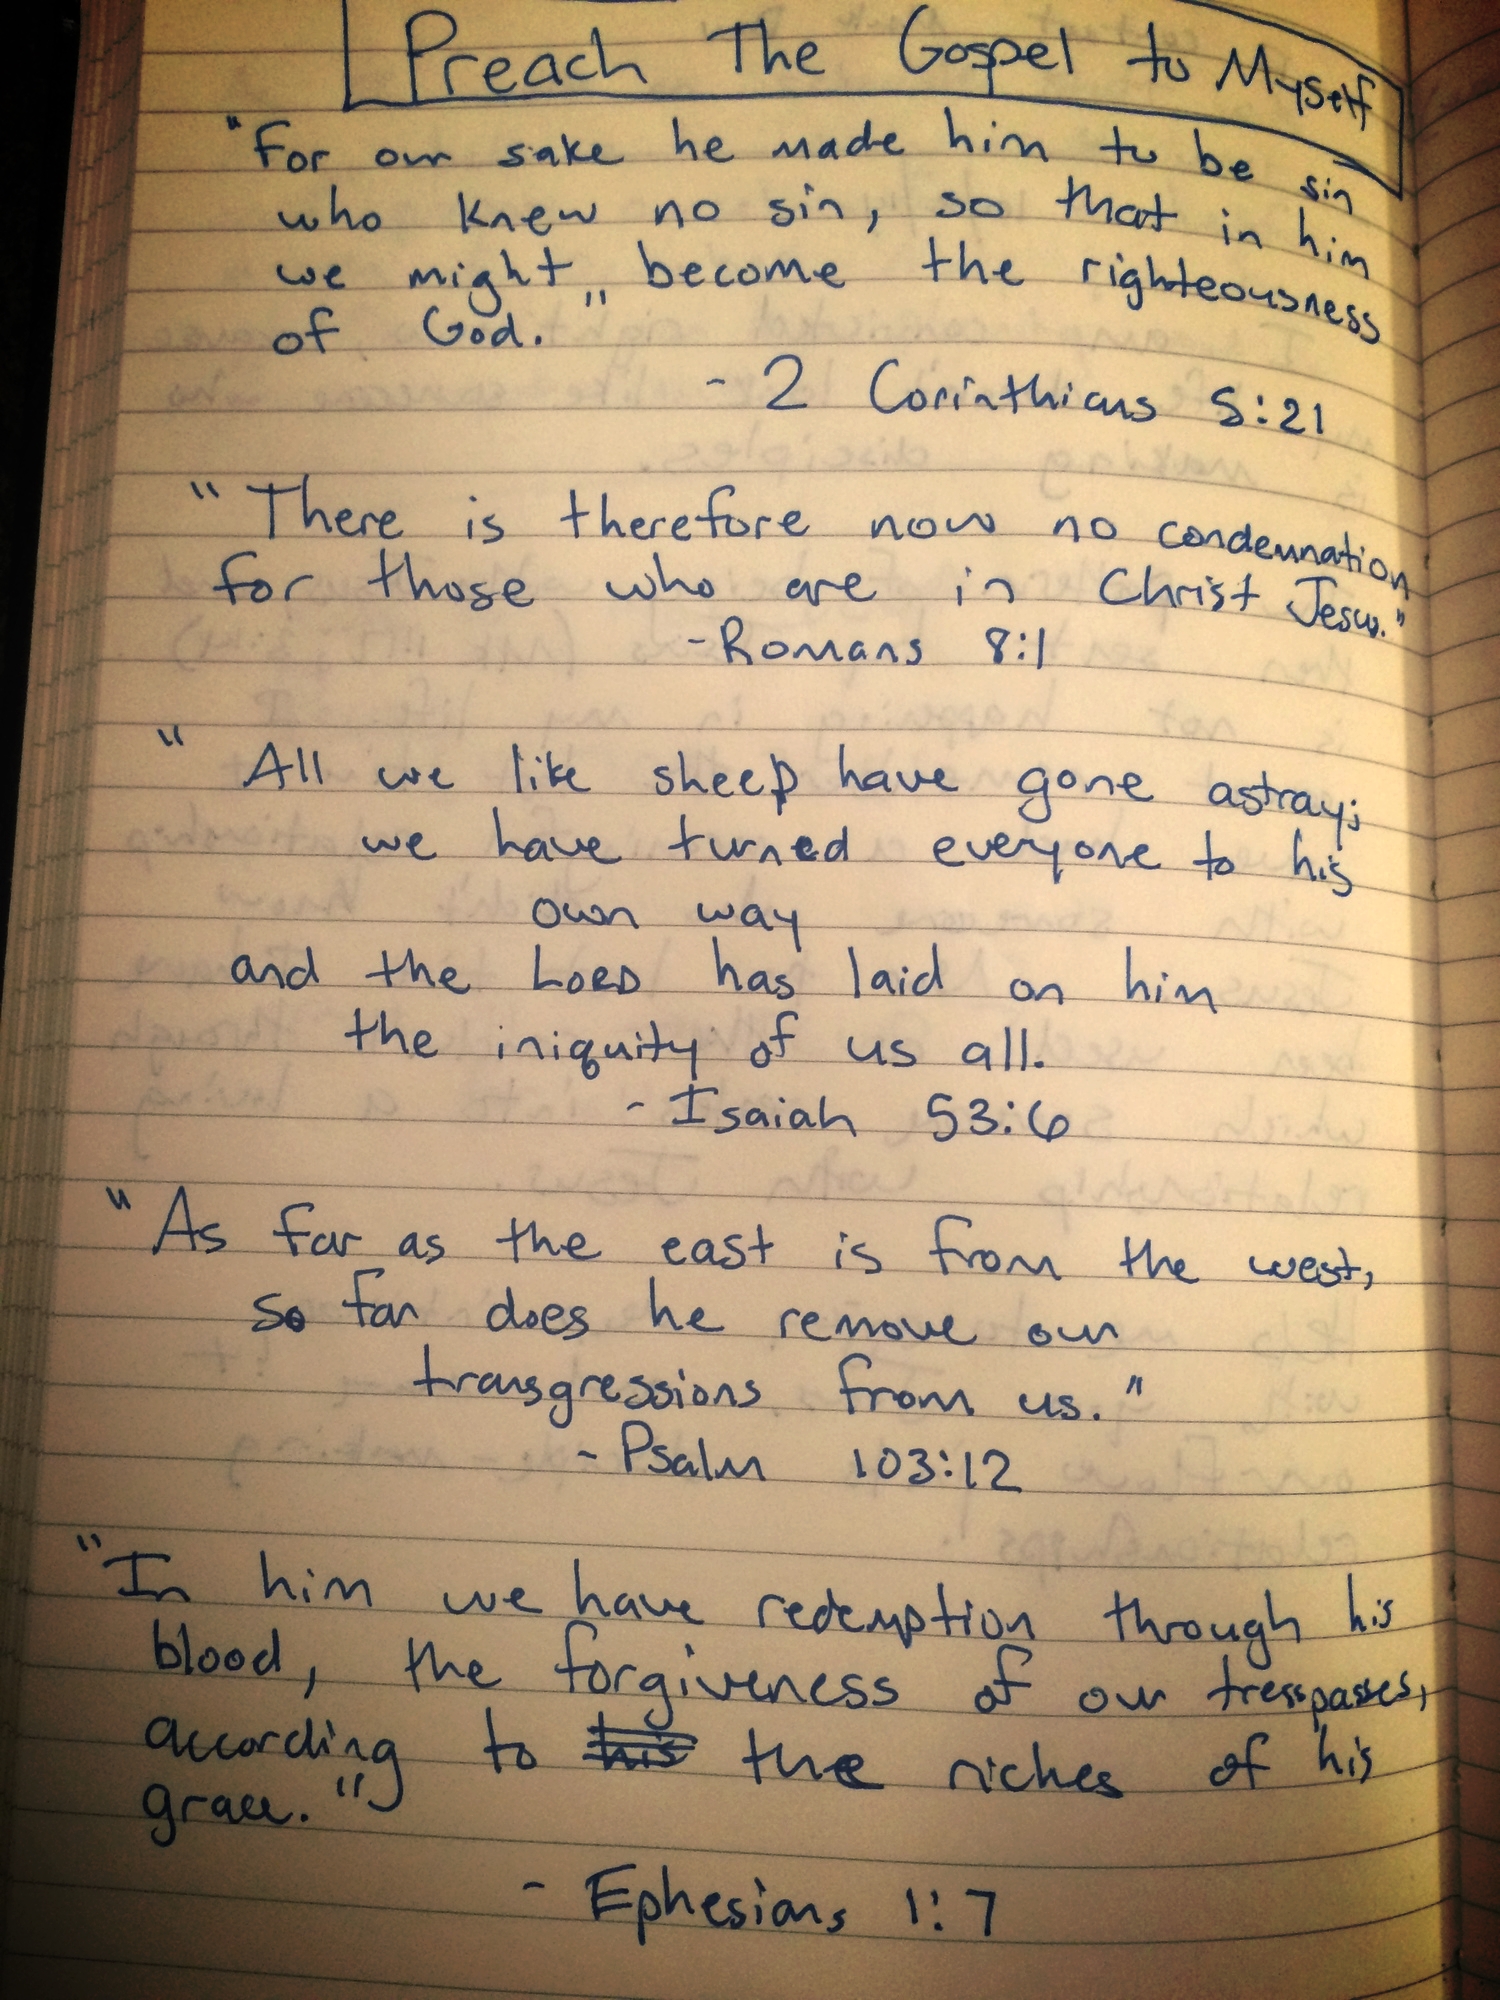 Preach The Gospel to Myself
"For our sake he made him to be sin
who knew no sin, so that in him
we might become the righteousness
of God."
- 2 Corinthians 5:21
"There is therefore now no condemnation
for those who are in Christ Jesus."
- Romans 8:1
"All we like sheep have gone astray;
we have turned everyone to his
own way
and the LORD has laid on him
the iniquity of us all.
- Isaiah 53:6
"As far as the east is from the west,
so far does he remove our
transgressions from us."
- Psalm 103:12
"In him we have redemption through his
blood, the forgiveness of our tresspasses,
according to his the riches of his
grace."
- Ephesians 1:7